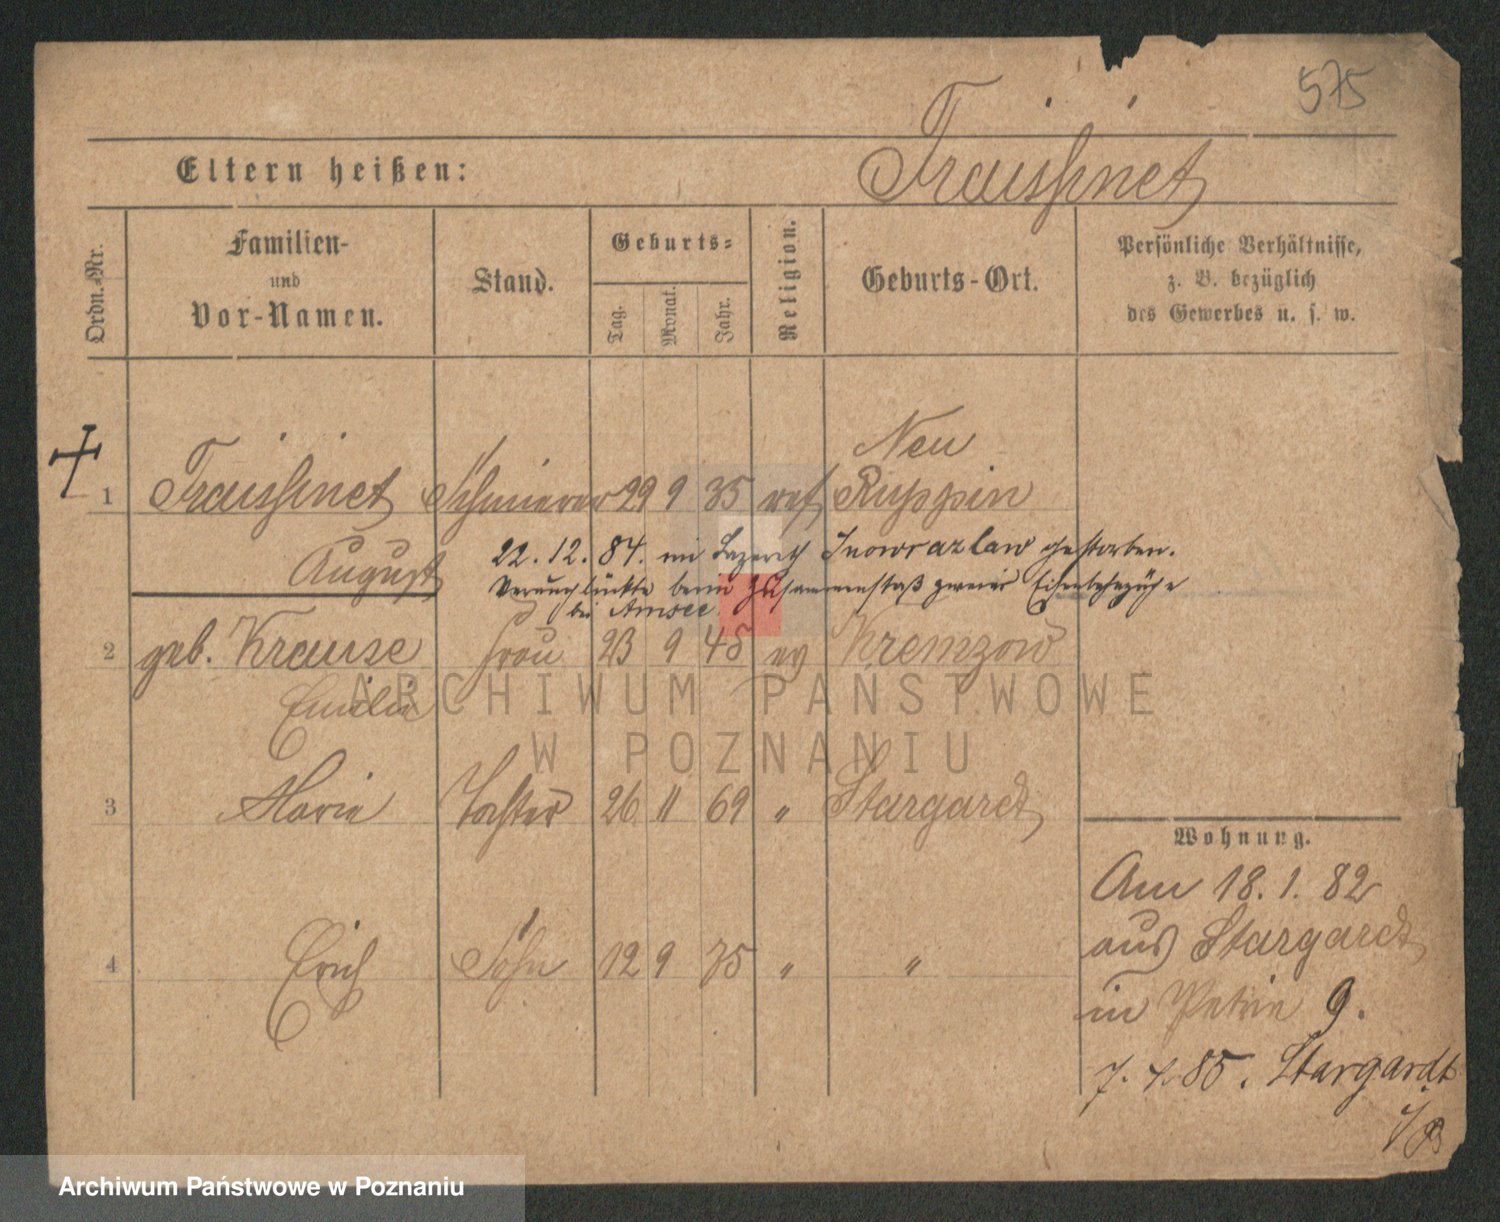 575
Eltern heißen:
Fraissinet
Ordn.-Nr.
Familien-
und
Vor-Namen.
Stand.
Geburts-
Tag.
Monat.
Jahr.
Religion.
Geburts-Ort.
Persönliche Verhältnisse,
z. B. bezüglich
des Gewerbes u. s. w.
Neu
1 Fraissinet Schmierer 29 9 35 ref Ruppin
August
22.12.84. im Lazareth Inowrazlaw gestorben.
Verunglückte beim Zusammenstoß zweier Eisenbahnzüge
bei Amsee.
2 geb. Krause Frau 23 9 45 ev Kremzow
Emilie
ARCHIWUM PAŃSTWOWE
W POZNANIU
3 Marie Tochter 26 11 69 " Stargardt
Wohnung.
Am 18.1.82
aus Stargardt
4 Erich Sohn 12 9 75 " "
in Petrie 9.
7. 4. 85. Stargardt
Archiwum Państwowe w Poznaniu